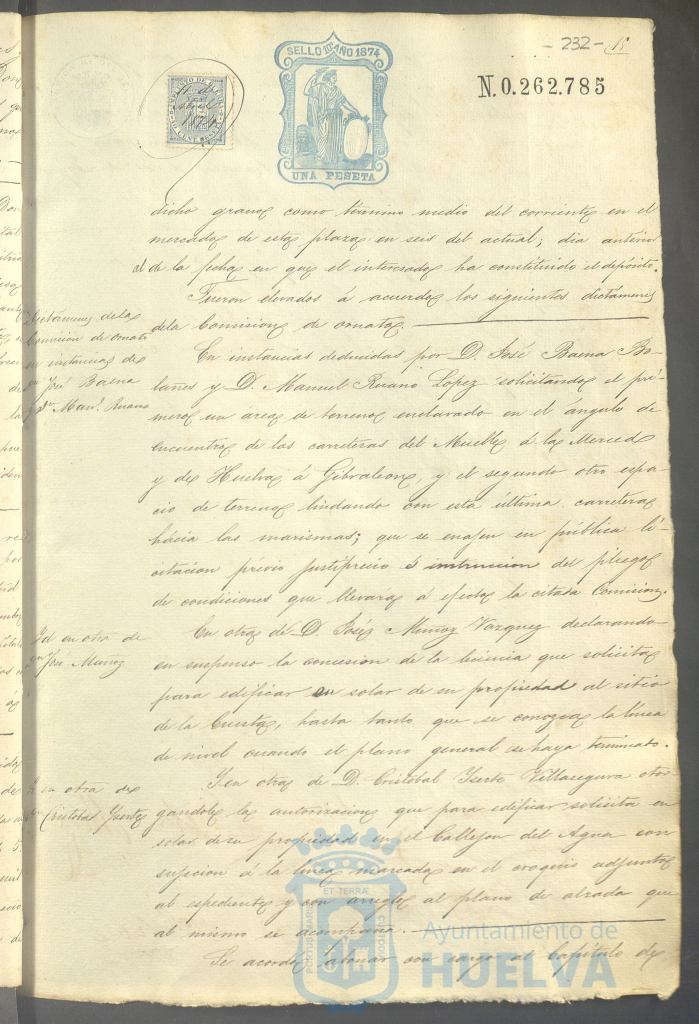 - 232 -
SELLO 10º AÑO 1874
UNA PESETA
N.0.262.785
11 de
Abril
1874
dicho grano como término medio del corriente en el
mercado de esta plaza en seis del actual; dia anterior
al de la fecha en que el interesado ha constituido el depósito.
Fueron elevados á acuerdo los siguientes dictámenes
dela Comision de ornato.
Dictámenes dela
Comision de Ornato
en instancias de
Dn José Baena
y Dn Manl. Ruano
En instancias deducidas por D. José Baena Bo-
lañes y D. Manuel Ruano Lopez solicitando el pri-
mero un area de terreno enclavado en el ángulo de
encuentro de las carreteras del Muelle de la Merced
y de Huelva á Gibraleon, y el segundo otro espa-
cio de terreno lindando con esta última carretera
hácia las marismas; que se enagen en pública li-
citacion prévio justiprecio é instruccion del pliego
de condiciones que llevará á efecto la citada Comision.
Id en otra de
Dn José Muñoz
En otra de D. José Muñoz Vazquez declarando
en suspenso la concesion de la licencia que solicita
para edificar en solar de su propiedad al sitio
de la Cuesta, hasta tanto que se conozca la línea
de nivel cuando el plano general se haya terminado.
Id en otra de
Dn Cristobal Yuerte
Y en otra de D. Cristóbal Yuerte Villasegura otor-
gandole la autorizacion que para edificar solicita en
solar de su propiedad en el Callejon del Agua con
sujecion á la línea marcada en el croquis adjunto
al espediente y con arreglo al plano de alzada que
al mismo se acompaña.
Se acordó abonar con cargo al Capítulo de
PORTUS MARIS
ET TERRÆ
CUSTODIA
Ayuntamiento de
HUELVA